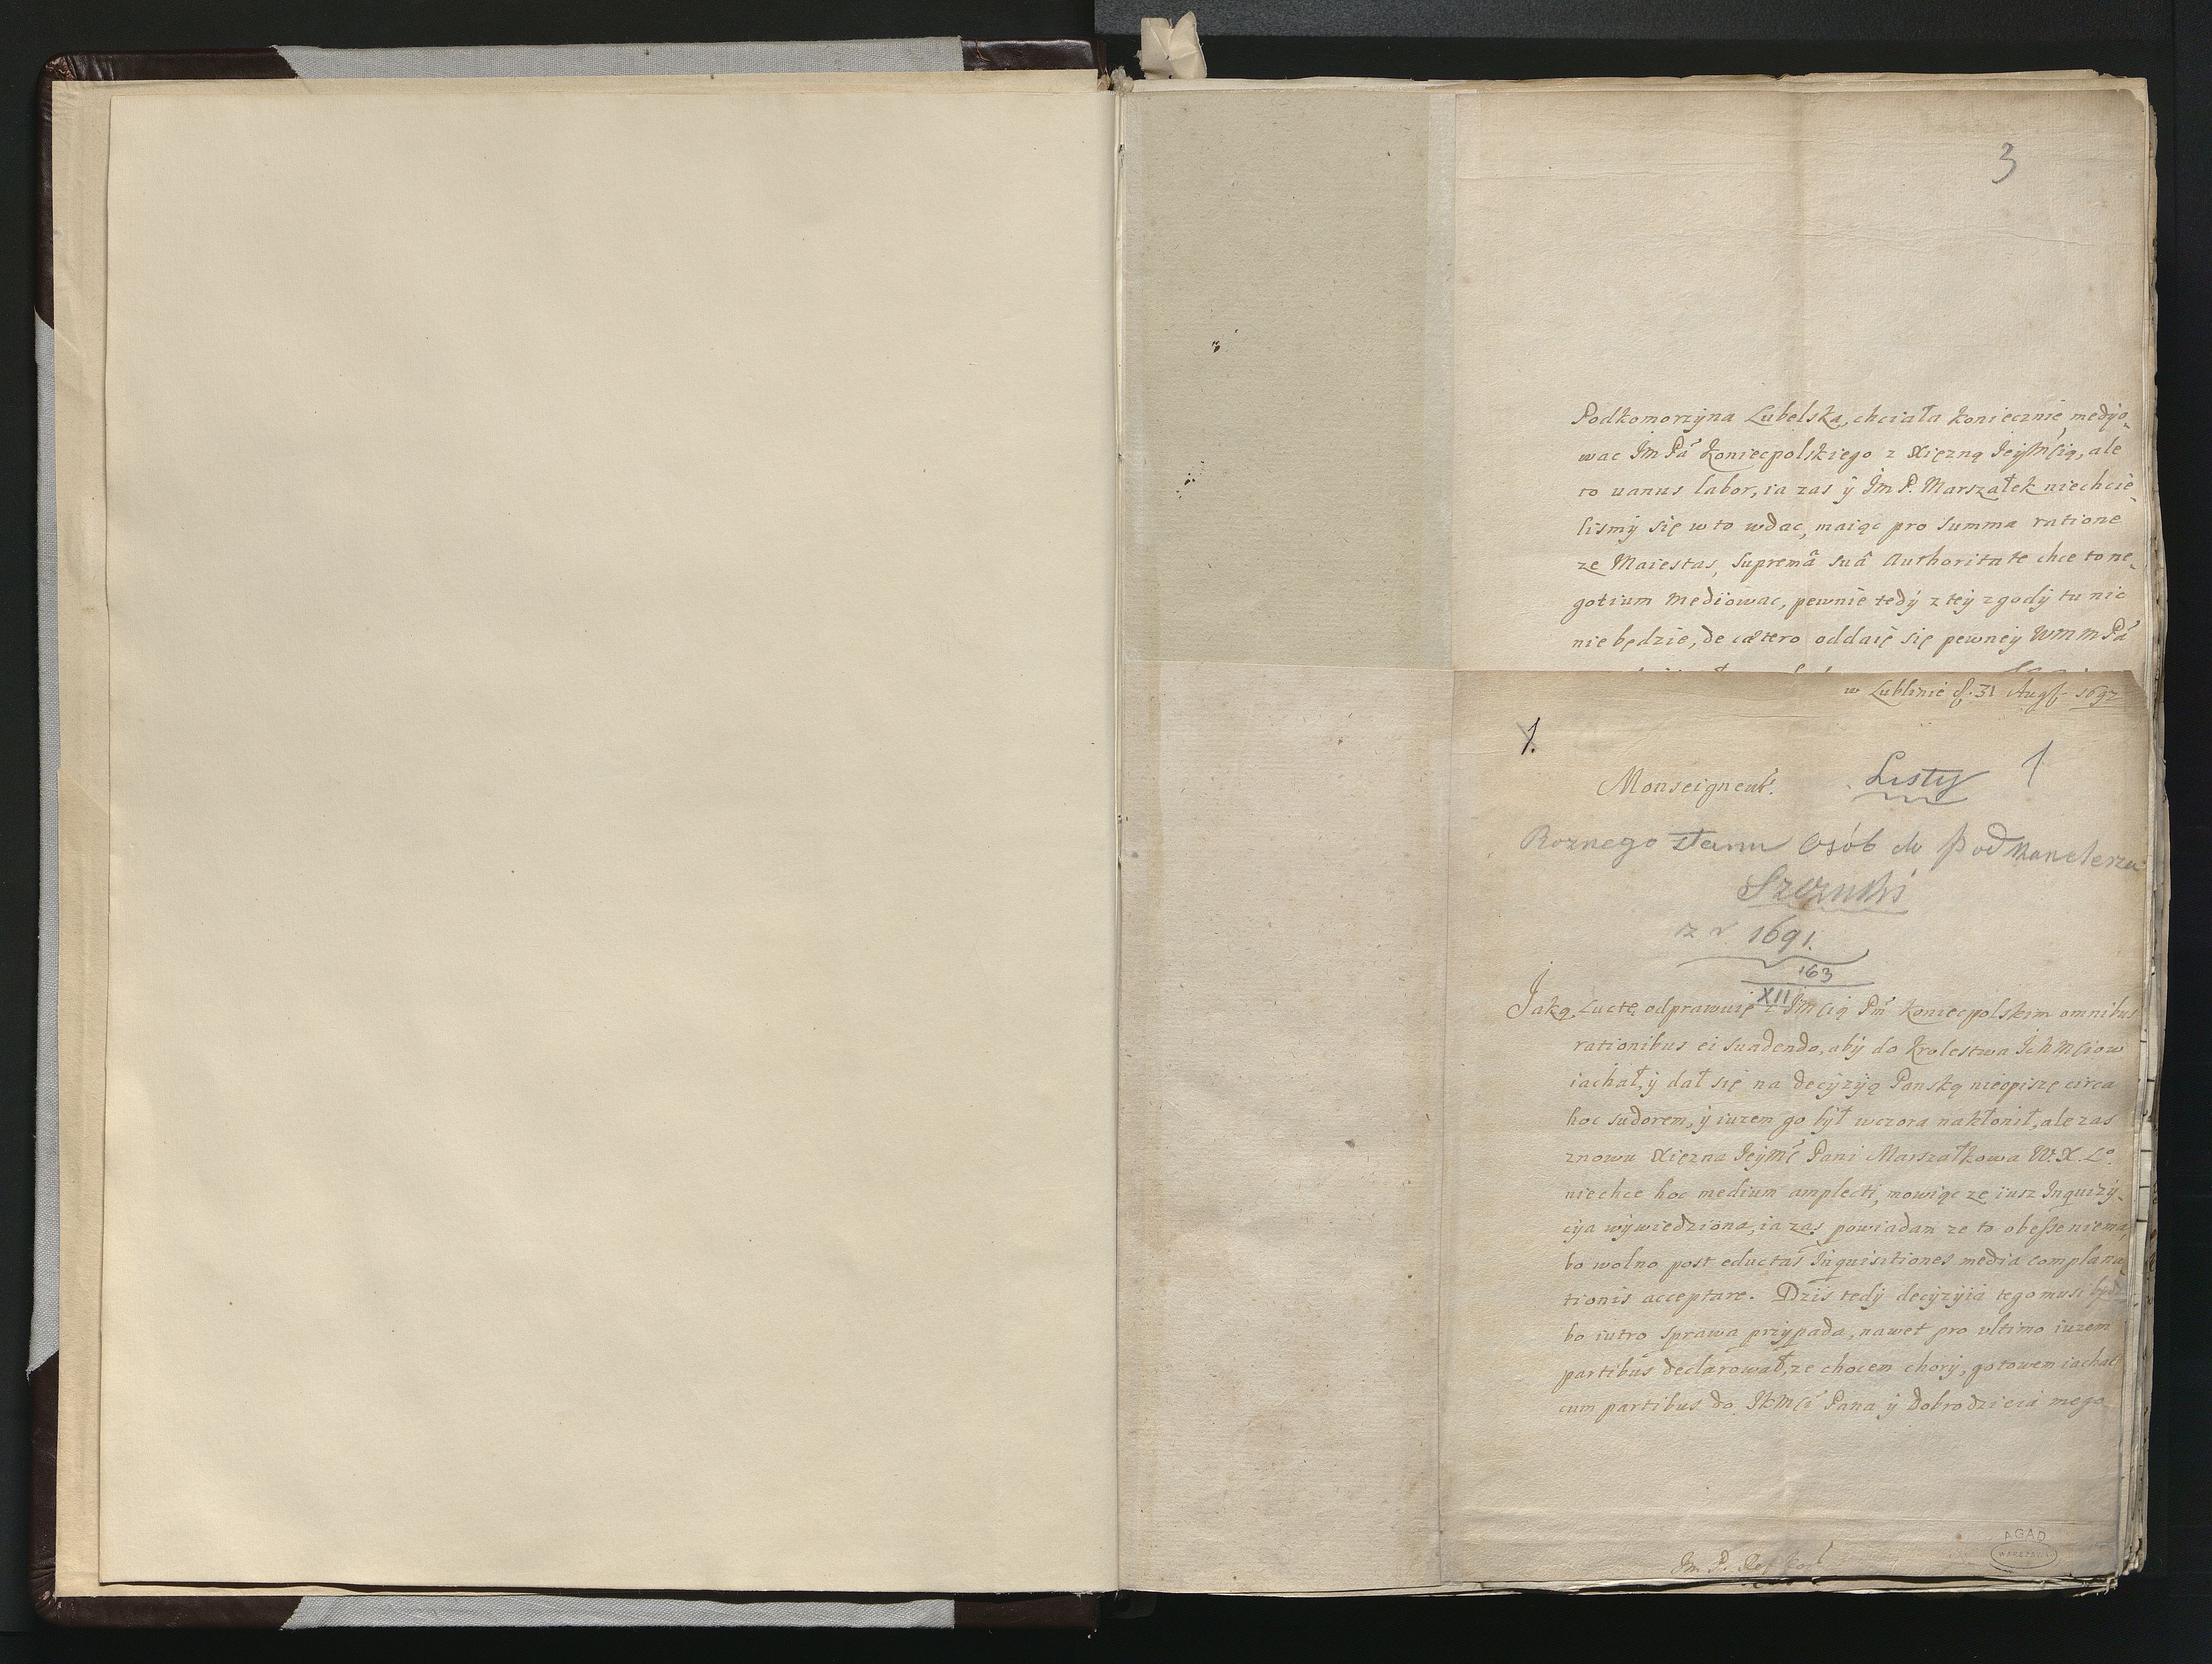 3
Podkomorzyna Lubelska, chciała koniecznie medijo-
wac Im Pa Koniecpolskiego z Xięzną Jeymscią, ale
to uanus labor, ia zas ÿ Im P. Marszałek niechcie-
lismÿ się w to wdac, maiąc pro summa ratione
ze Maiestas, supremâ suâ Authoritate chce to ne-
gotium mediowac, pewnie tedÿ z teÿ zgodÿ tu nic
nie będzie, de cætero oddaię się pewneÿ WMM Pa
w Lublinie d. 31 Augs. 1692
1.
Monseigneur.
Listy
1
Roznego stanu Osób do Podkanclerza
Szczuki
z r 1691.
163
XII
Jaką Luctę odprawuię z Imscią Pm Koniecpolskim omnibus
rationibus ei suadendo, abÿ do Krolestwa Ichmsciow
iachał, ÿ dał się na decÿzÿą Panską nieopiszę circa
hoc sudorem, ÿ iuzem go bÿł wczora nakłonił, ale zas
znowu Xięzna Jeymsc Pani Marszałkowa W. X. Lo.
niechce hoc medium amplecti, mowiąc ze iusz Inquizÿ-
cÿa wÿwiedziona, ia zas powiadan ze to obesse niema,
bo wolno post eductas Inquisitiones media complana-
tionis acceptare. Dzis tedÿ decÿzÿia tego musi bÿdz
bo iutro sprawa przÿpada, nawet pro vltimo iuzem
partibus declarował, ze chocem chorÿ, gotowem iachac
cum partibus do JKMsci Pana ÿ Dobrodzieia mego
Im P.
AGAD
WARSZAWA